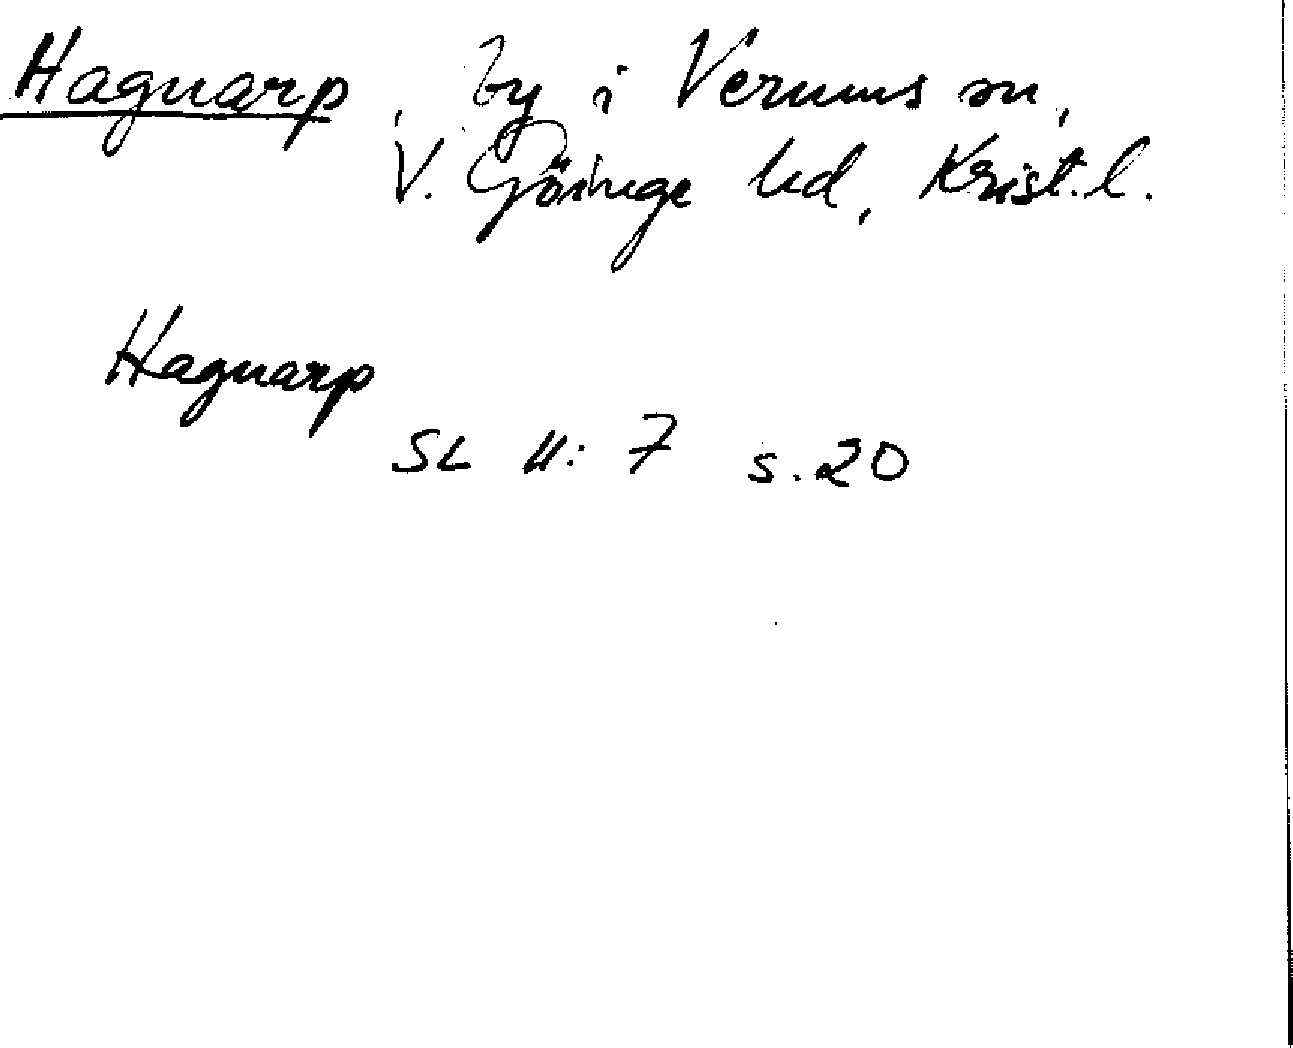 Hagnarp, by i Verums sn,
V. Göinge hd, Krist. l.
Hagnarp
SL II: 7 s. 20